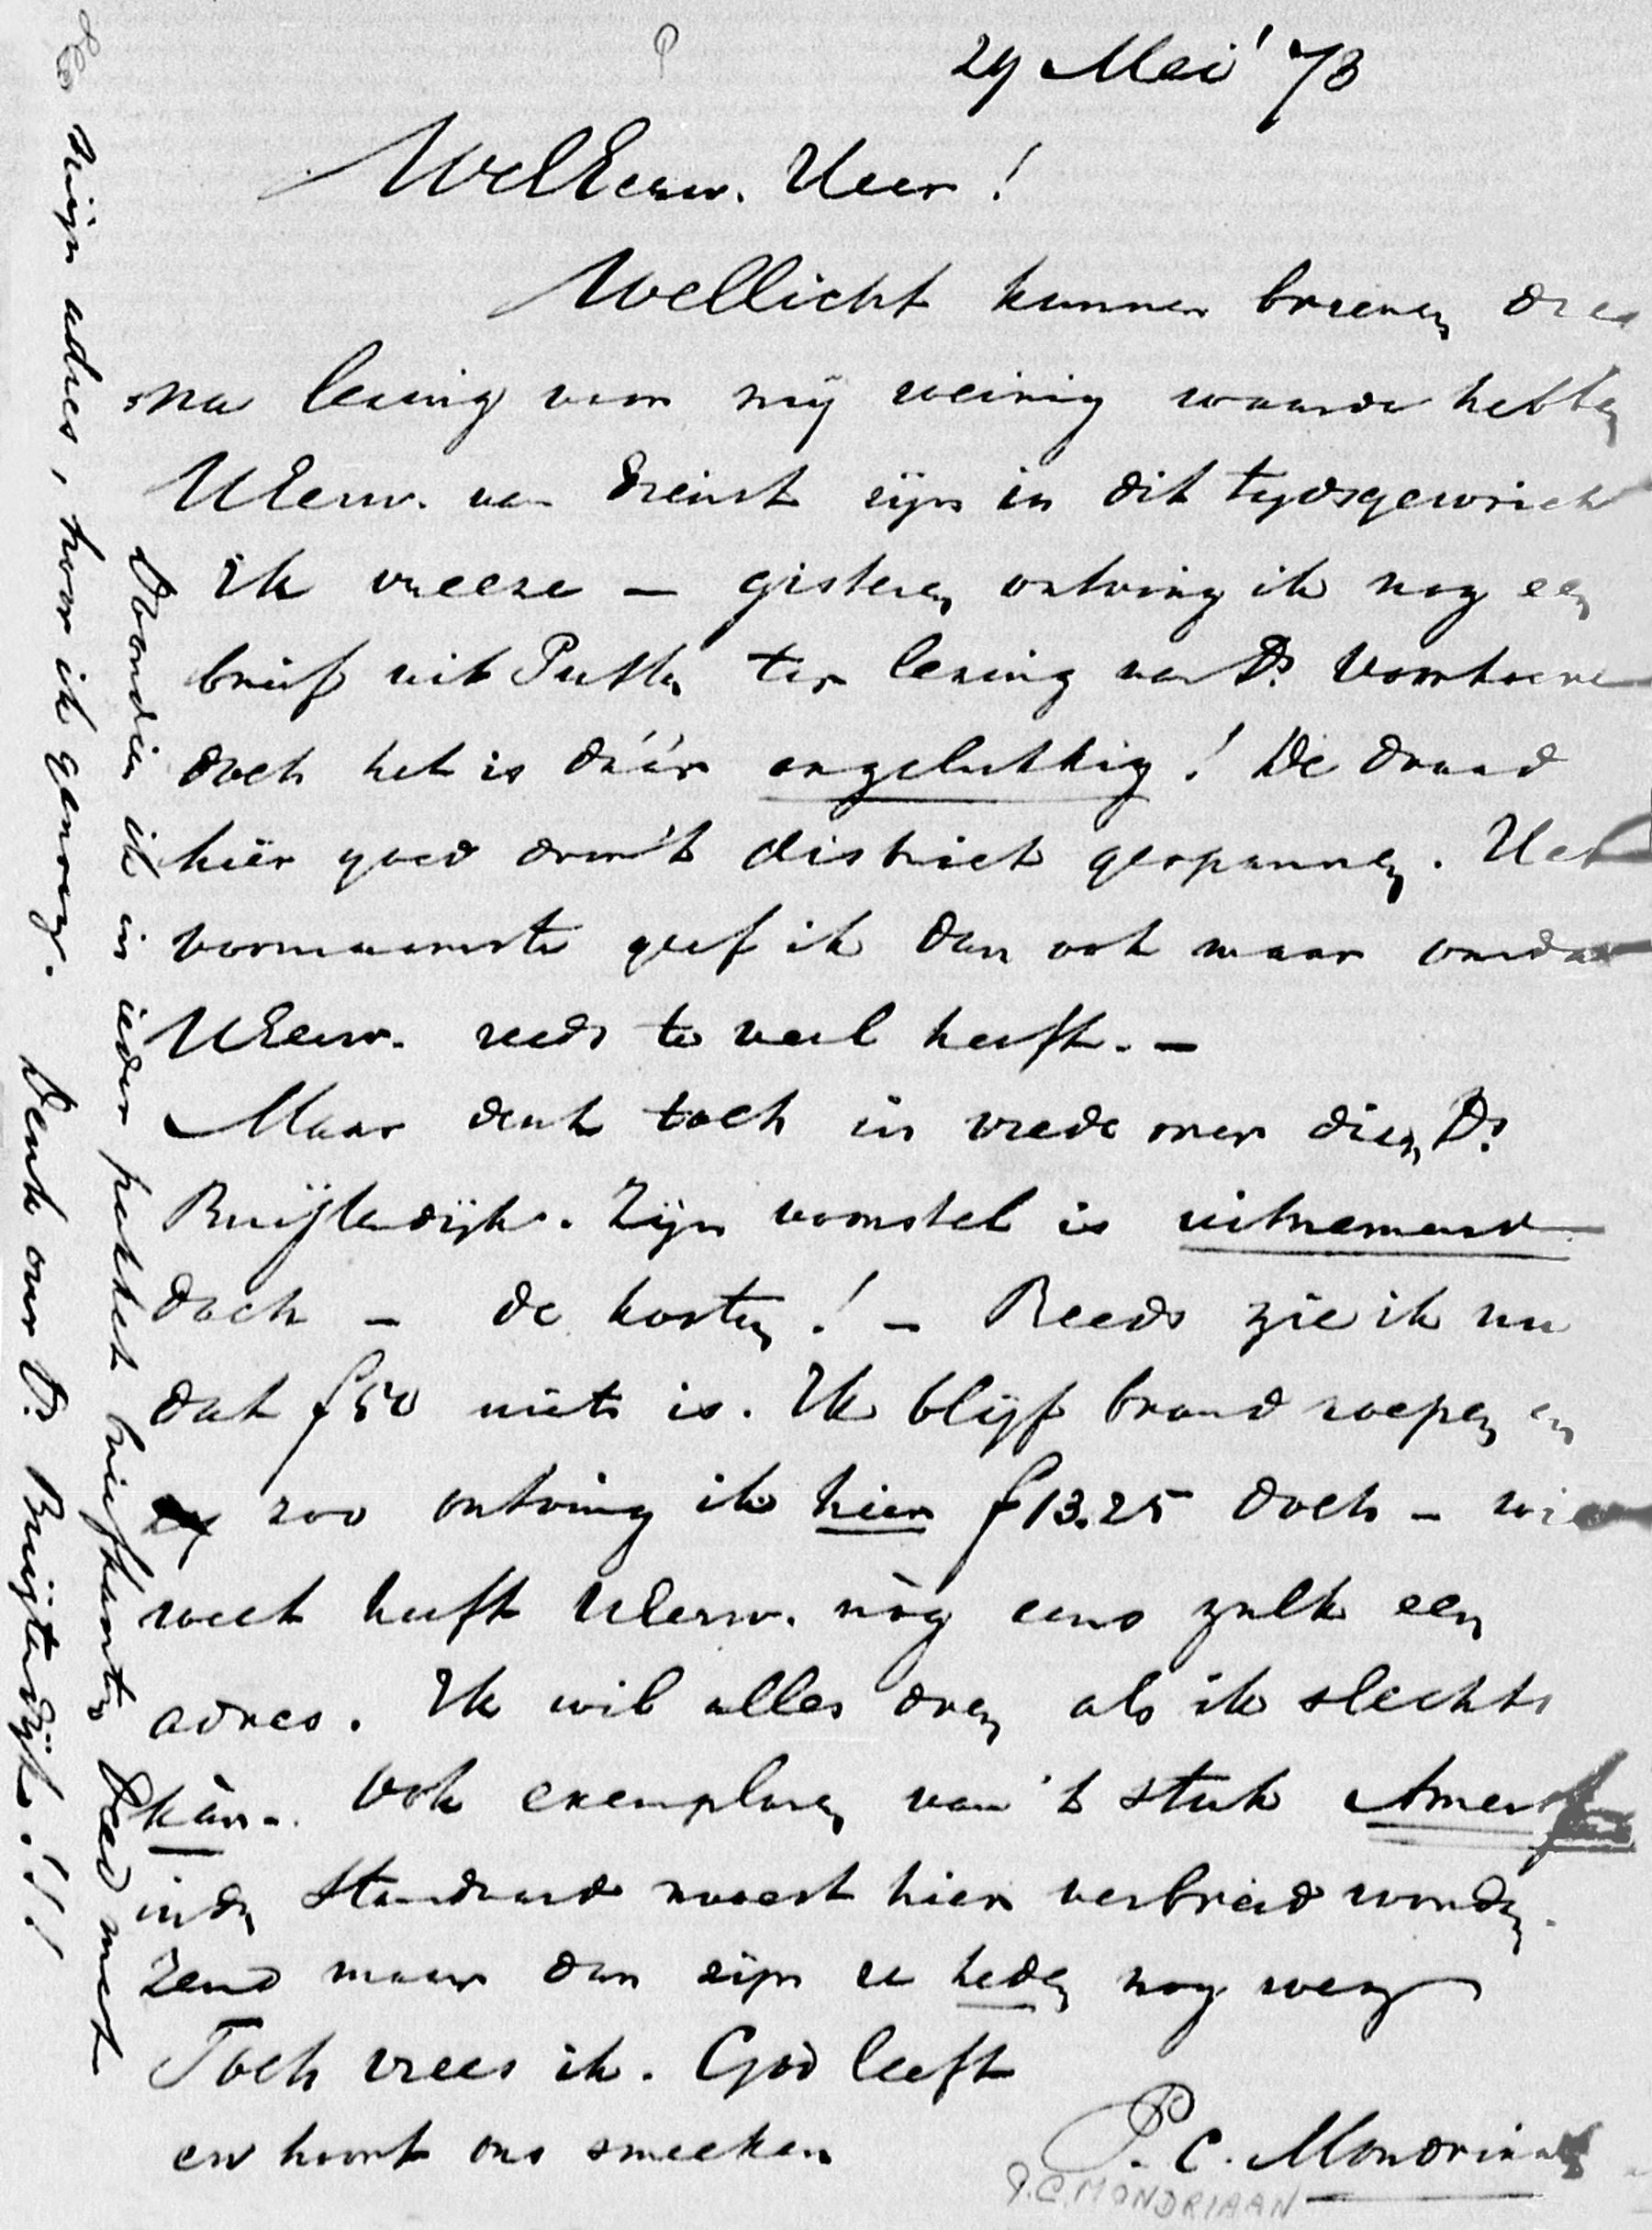 29 Mei '73
WelEerw. Heer!
Wellicht kunnen brieven die
na lezing voor mij weinig waarde hebben
UEerw. van dienst zijn in dit tijdsgewricht
Ik vreeze — gisteren ontving ik nog een
brief uit Putten ter lezing van Ds. Voorhoeve
doch het is dáár ongelukkig! De draad
hier goed door 't district gespannen. Het
voornaamste geef ik dan ook maar omdat
UEerw. reeds te veel heeft. —
Maar denk toch in vrede over dien Ds.
Buijtendijk. Zijn voorstel is uitnemend
doch — de kosten! — Reeds zie ik nu
dat f50 niets is. Ik blijf brand roepen en
zoo ontving ik hier f13.25 doch — wie
weet heeft UEerw. nòg eens zulk een
adres. Ik wil alles doen als ik slechts
kàn. Ook exemplaren van 't stuk
in de Standaard moest hier verbreid worden.
Zend maar dan zijn ze heden nog weg
Toch vrees ik. God leeft
en hoort ons smeeken
P. C. Mondriaan
P.C. MONDRIAAN
Bovendien ik in ieder pakket briefkaarten deed met
mijn adres, hoor ik genoeg. Denk over Ds. Buijtendijk!!!